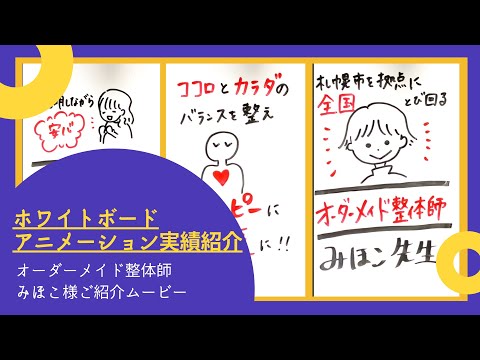 しながら
安心
ココロとカラダの
バランスを整え
ピーに
に!!
札幌市を拠点に
全国とび回る
オーダーメイド整体師
みほこ先生
ホワイトボード
アニメーション実績紹介
オーダーメイド整体師
みほこ様ご紹介ムービー